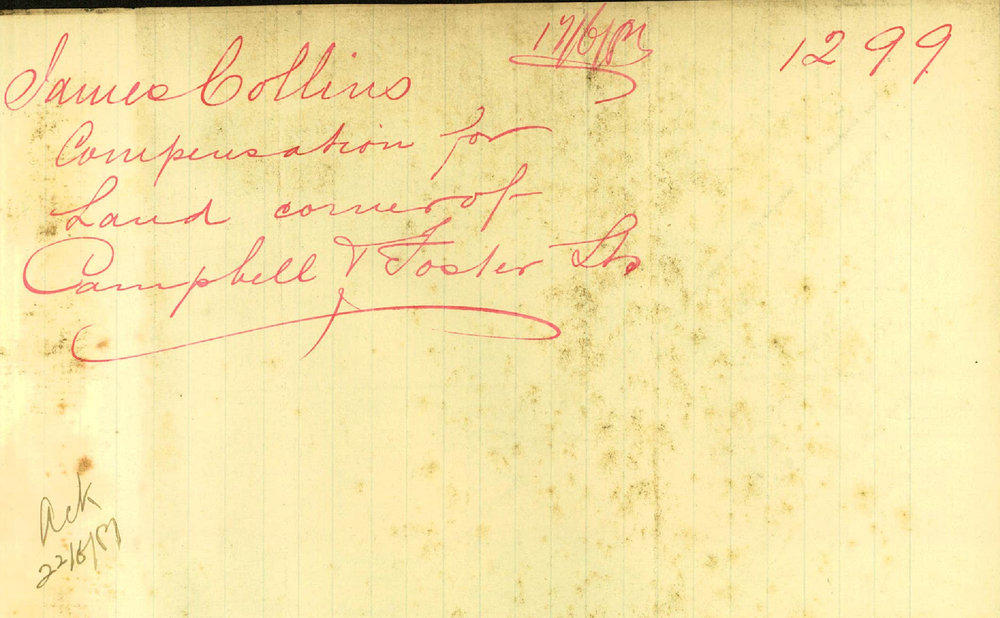 James Collins 1299
Compensation for
Land corner of
Campbell & Foster Sts
Ack